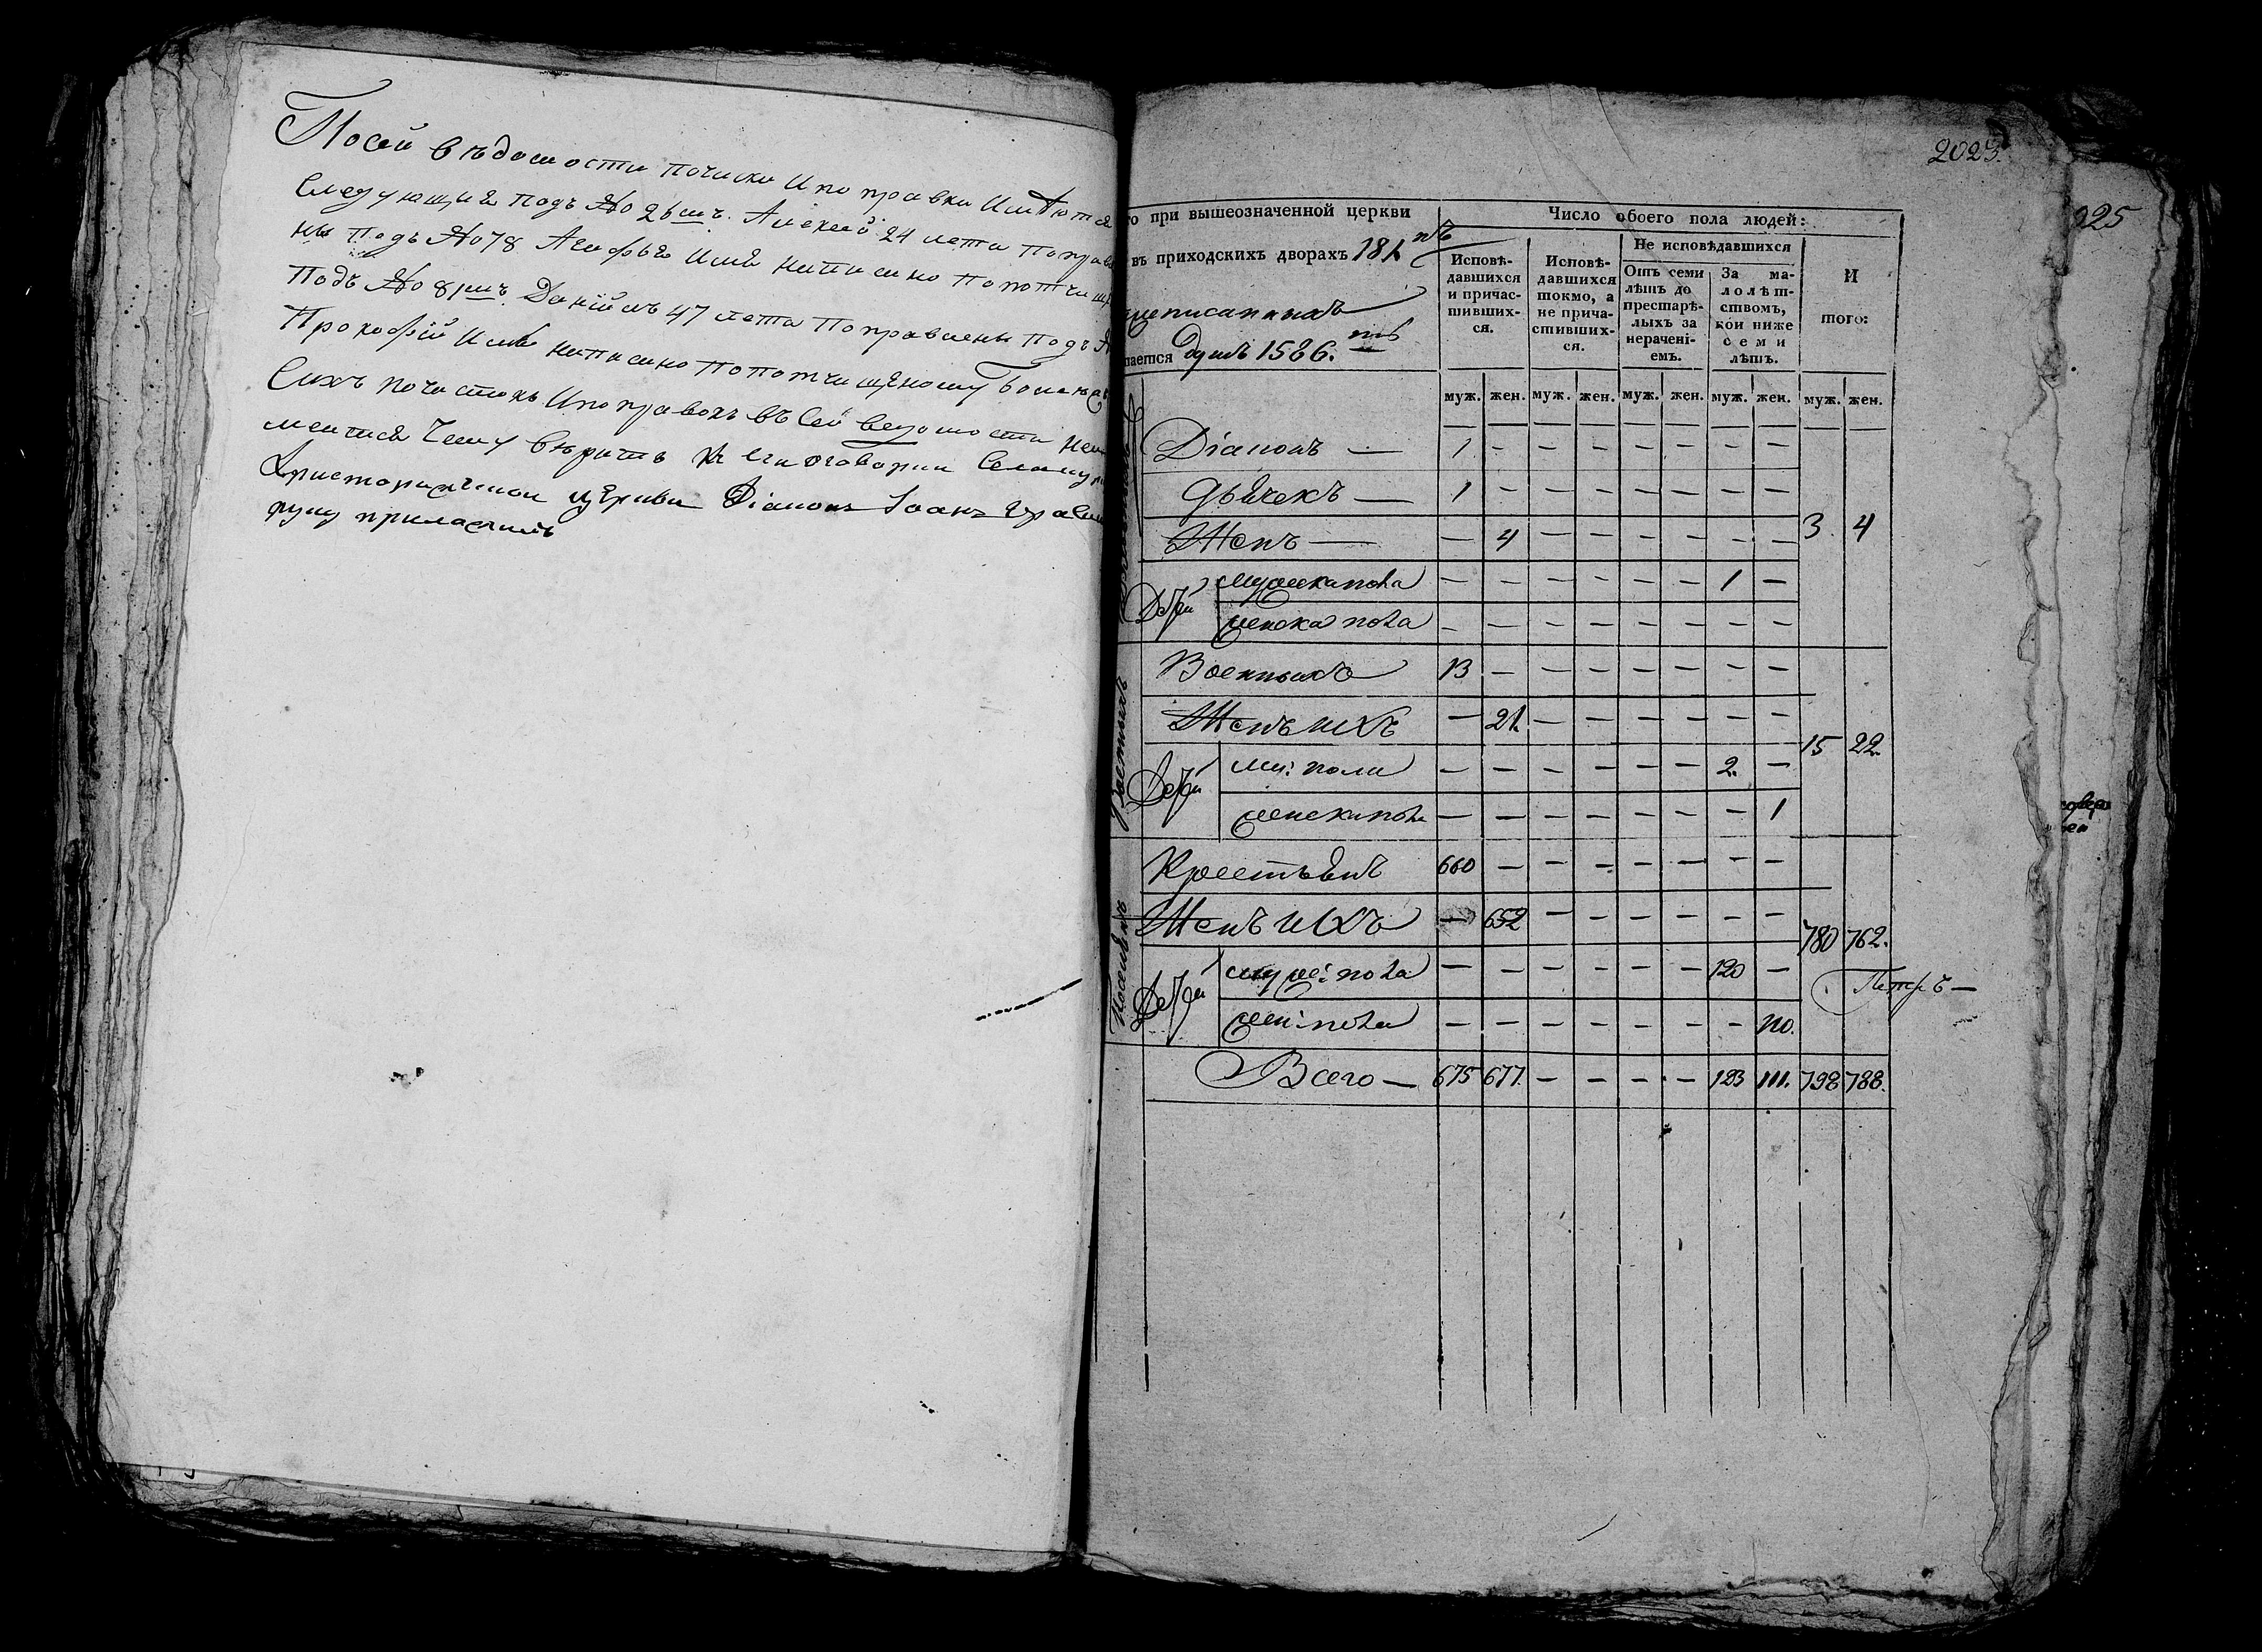 Посей вѣдомости почиски и поправки имѣются
следующия подъ № 26мъ. Алексей 24 лета поправ
ны подъ № 78 Агафья имя написано попотчищ
подъ № 81мъ. Данійлъ 47 лета поправлены подъ №
Прокофій имя написано попотчищеному болѣ
сихъ почистокъ и поправокъ въ сей ведомости не
меится чему вѣрить
церкви Діаконъ Іоанъ
руку приложилъ
2025.
025
го при вышеозначенной церкви
въ приходскихъ дворахъ 181
душъ 1586.
Число обоего пола людей:
Исповѣ-
давшихся
и причас-
тивших-
ся.
Исповѣ-
давшихся
токмо, а
не прича-
стивших-
ся.
Не исповѣдавшихся
Отъ семи
лѣтъ до
престарѣ-
лыхъ за
нерачені-
емъ.
За ма-
лолѣт-
ствомъ,
кои ниже
семи
лѣтъ.
И
того:
муж. жен. муж. жен. муж. жен. муж. жен. муж. жен.
Діаконъ — 1 — — — — — — —
Дьячекъ — 1 — — — — — — —
Женъ — — 4 — — — — — — 3 4
Дѣтей мужска пола — — — — — — 1 —
женска пола — — — — — — — —
Военныхъ 13 — — — — — — —
Женъ ихъ — 21. — — — — — — 15 22.
Дѣтей му: пола — — — — — — 2. —
женска пола — — — — — — — 1
Крестьянъ 660 — — — — — — —
Женъ ихъ — 652 — — — — — — 780 762.
Дѣтей муже: пола — — — — — — 120 —
жен: пола — — — — — — — 110.
Петръ —
Всего — 675 677. — — — — 123 111. 798 788.